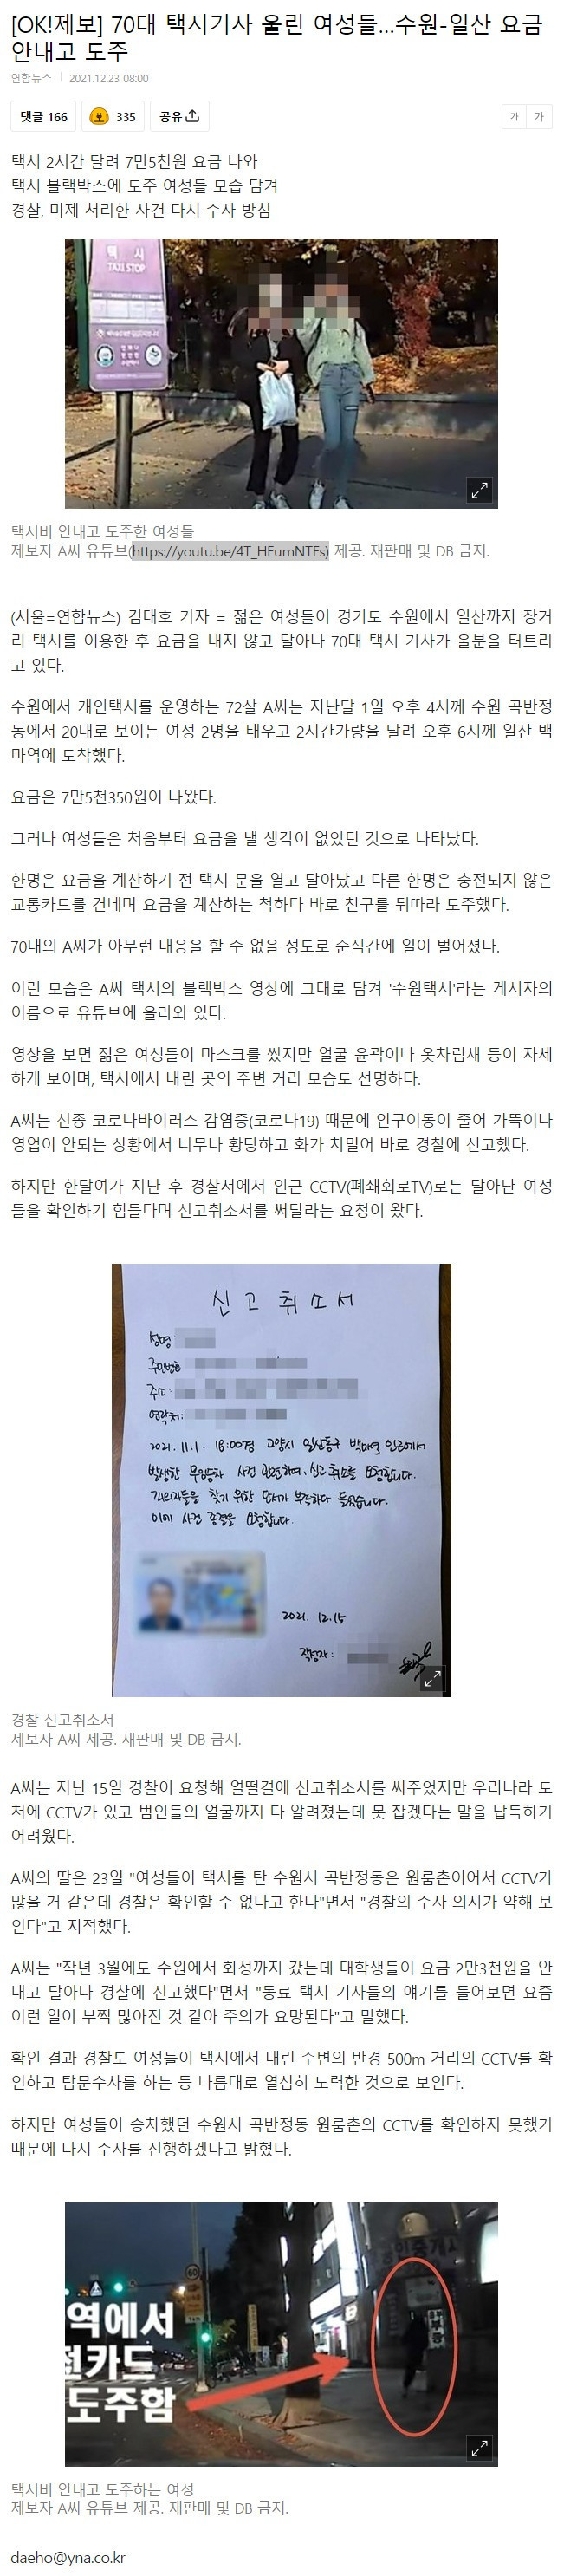 [OK!제보] 70대 택시기사 울린 여성들...수원-일산 요금
안내고 도주
연합뉴스 2021.12.23 08:00
댓글 166 335 공유 가 가
택시 2시간 달려 7만5천원 요금 나와
택시 블랙박스에 도주 여성들 모습 담겨
경찰, 미제 처리한 사건 다시 수사 방침
택 시
TAXI STOP
택시비 안내고 도주한 여성들
제보자 A씨 유튜브(https://youtu.be/4T_HEumNTFs) 제공. 재판매 및 DB 금지.
(서울=연합뉴스) 김대호 기자 = 젊은 여성들이 경기도 수원에서 일산까지 장거
리 택시를 이용한 후 요금을 내지 않고 달아나 70대 택시 기사가 울분을 터트리
고 있다.
수원에서 개인택시를 운영하는 72살 A씨는 지난달 1일 오후 4시께 수원 곡반정
동에서 20대로 보이는 여성 2명을 태우고 2시간가량을 달려 오후 6시께 일산 백
마역에 도착했다.
요금은 7만5천350원이 나왔다.
그러나 여성들은 처음부터 요금을 낼 생각이 없었던 것으로 나타났다.
한명은 요금을 계산하기 전 택시 문을 열고 달아났고 다른 한명은 충전되지 않은
교통카드를 건네며 요금을 계산하는 척하다 바로 친구를 뒤따라 도주했다.
70대의 A씨가 아무런 대응을 할 수 없을 정도로 순식간에 일이 벌어졌다.
이런 모습은 A씨 택시의 블랙박스 영상에 그대로 담겨 '수원택시'라는 게시자의
이름으로 유튜브에 올라와 있다.
영상을 보면 젊은 여성들이 마스크를 썼지만 얼굴 윤곽이나 옷차림새 등이 자세
하게 보이며, 택시에서 내린 곳의 주변 거리 모습도 선명하다.
A씨는 신종 코로나바이러스 감염증(코로나19) 때문에 인구이동이 줄어 가뜩이나
영업이 안되는 상황에서 너무나 황당하고 화가 치밀어 바로 경찰에 신고했다.
하지만 한달여가 지난 후 경찰서에서 인근 CCTV(폐쇄회로TV)로는 달아난 여성
들을 확인하기 힘들다며 신고취소서를 써달라는 요청이 왔다.
신고취소서
성명
주민번호
주소:
연락처:
2021. 11. 1. 18:00경 고양시 일산동구 백마역 인근에서
발생한 무임승차 사건 관련하여, 신고 취소를 요청합니다.
피의자들을 찾기 위한 단서가 부족하다 들었습니다.
이에 사건 종결을 요청합니다.
2021. 12. 15
작성자:
경찰 신고취소서
제보자 A씨 제공. 재판매 및 DB 금지.
A씨는 지난 15일 경찰이 요청해 얼떨결에 신고취소서를 써주었지만 우리나라 도
처에 CCTV가 있고 범인들의 얼굴까지 다 알려졌는데 못 잡겠다는 말을 납득하기
어려웠다.
A씨의 딸은 23일 "여성들이 택시를 탄 수원시 곡반정동은 원룸촌이어서 CCTV가
많을 거 같은데 경찰은 확인할 수 없다고 한다"면서 "경찰의 수사 의지가 약해 보
인다"고 지적했다.
A씨는 "작년 3월에도 수원에서 화성까지 갔는데 대학생들이 요금 2만3천원을 안
내고 달아나 경찰에 신고했다"면서 "동료 택시 기사들의 얘기를 들어보면 요즘
이런 일이 부쩍 많아진 것 같아 주의가 요망된다"고 말했다.
확인 결과 경찰도 여성들이 택시에서 내린 주변의 반경 500m 거리의 CCTV를 확
인하고 탐문수사를 하는 등 나름대로 열심히 노력한 것으로 보인다.
하지만 여성들이 승차했던 수원시 곡반정동 원룸촌의 CCTV를 확인하지 못했기
때문에 다시 수사를 진행하겠다고 밝혔다.
60
역에서
전카드
도주함
택시비 안내고 도주하는 여성
제보자 A씨 유튜브 제공. 재판매 및 DB 금지.
daeho@yna.co.kr